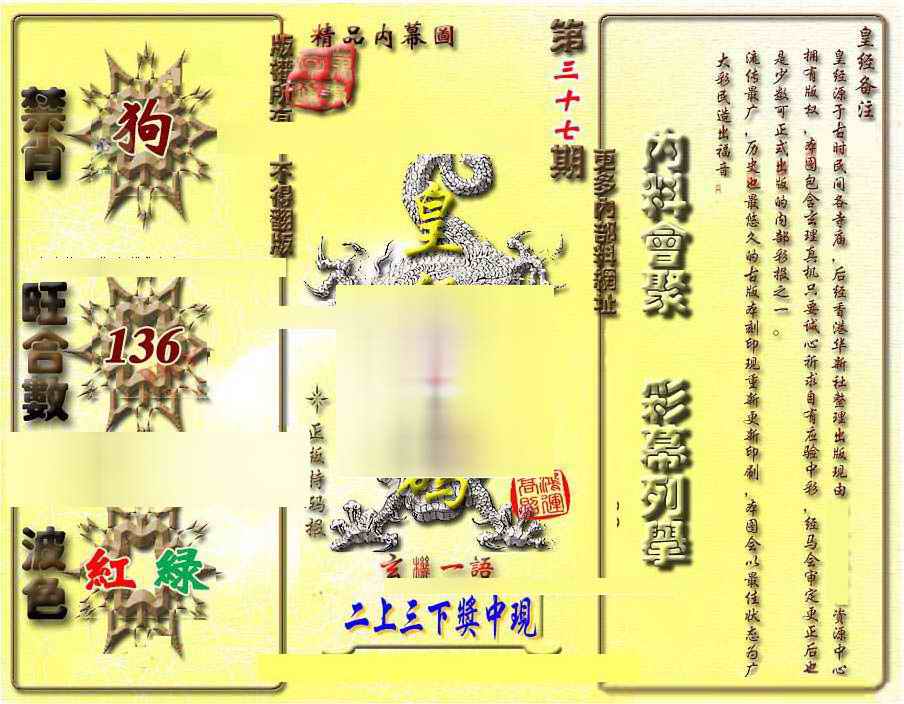 精品内幕圖
第三十七期
版權所有
不得翻版
禁肖
狗
旺合數
136
波色
紅 綠
皇
正版特码报
鸿运
玄機一語
二上三下獎中現
更多內部料網址
内料會聚
彩幕列舉
皇经备注
皇经源于古时民间各寺庙,后经香港华新社整理出版现由 资源中心
拥有版权,本图包含玄理真机只要诚心祈求自有应验中彩,经马会审定更正后也
是少数可正式出版的内部彩报之一。
流传最广,历史也最悠久的古版本刻印现重新更新印刷,本图会以最佳状态为广
大彩民造出福音